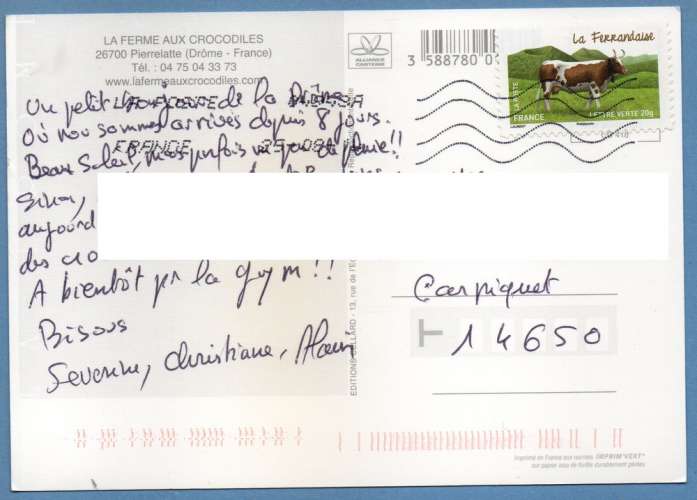 LA FERME AUX CROCODILES
26700 Pierrelatte (Drôme - France)
Tél. : 04 75 04 33 73
www.lafermeauxcrocodiles.com
ALLIANCE CARTERIE
3 588780 0
La Ferrandaise
LA POSTE
FRANCE LETTRE VERTE 20g
LA POSTE
FRANCE
Un petit bonjour de la Drôme
où nous sommes arrivés depuis 8 jours.
Beau soleil, mais parfois un peu de pluie!!
Sinon,
aujourd
des cro
A bientôt pr la gym!!
Bisous
Severine, Christiane, Alain
EDITIONS CELLARD - 13, rue de l'E
Carpiquet
14650
Imprimé en France aux normes IMPRIM'VERT®
sur papier issu de forêts durablement gérées